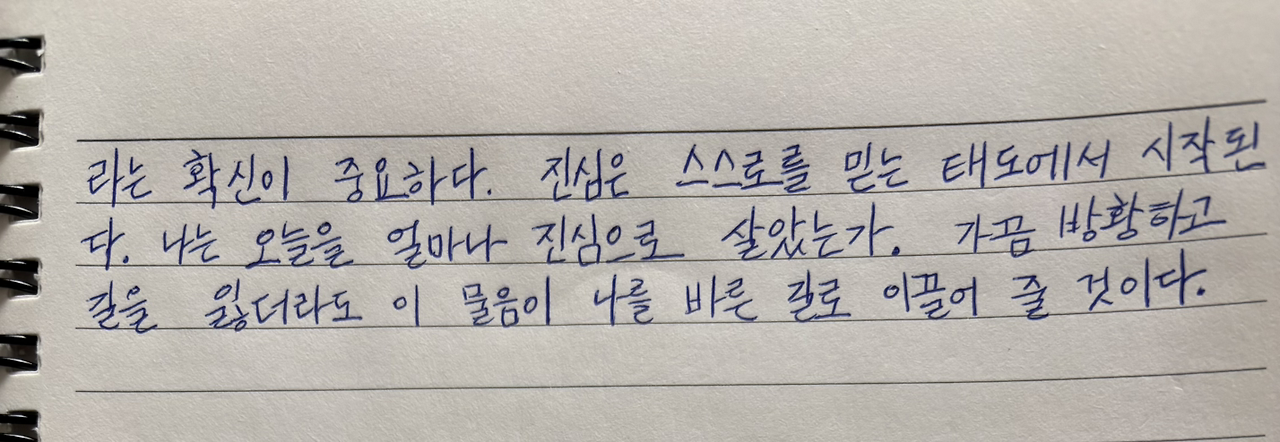 라는 확신이 중요하다. 진심은 스스로를 믿는 태도에서 시작된
다. 나는 오늘을 얼마나 진심으로 살았는가. 가끔 방황하고
길을 잃더라도 이 물음이 나를 바른 길로 이끌어 줄 것이다.